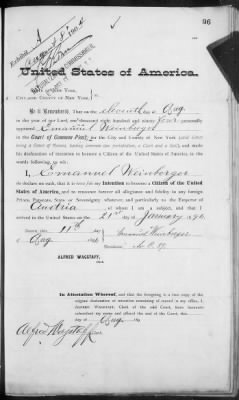 96
Exhibit A
United States of America.
State of New York,
City and County of New York, } ss.
Be it Remembered, That on the eleventh day of Aug.
in the year of our Lord, one thousand eight hundred and ninety four personally
appeared Emanuel Weinberger
in the Court of Common Pleas, for the City and County of New York (said Court
being a Court of Record, having common law jurisdiction, a Clerk and a Seal), and made
his declaration of intention to become a Citizen of the United States of America, in the
words following, to wit:
I, Emanuel Weinberger
do declare on oath, that it is bona fide my Intention to become a Citizen of the United
States of America, and to renounce forever all allegiance and fidelity to any foreign
Prince, Potentate, State or Sovereignty whatever, and particularly to the Emperor
of Austria of whom I am a subject, and that I
arrived in the United States on the 21st day of January
Sworn this 11th day
of Aug.
Emanuel Weinberger
ALFRED WAGSTAFF,
In Attestation Whereof, and that the foregoing is a true copy of the
original declaration of intention remaining of record in my office, I,
Alfred Wagstaff, Clerk of the said Court, have hereunto
subscribed my name and affixed the seal of the Court, this
day of Aug.
Alfred Wagstaff